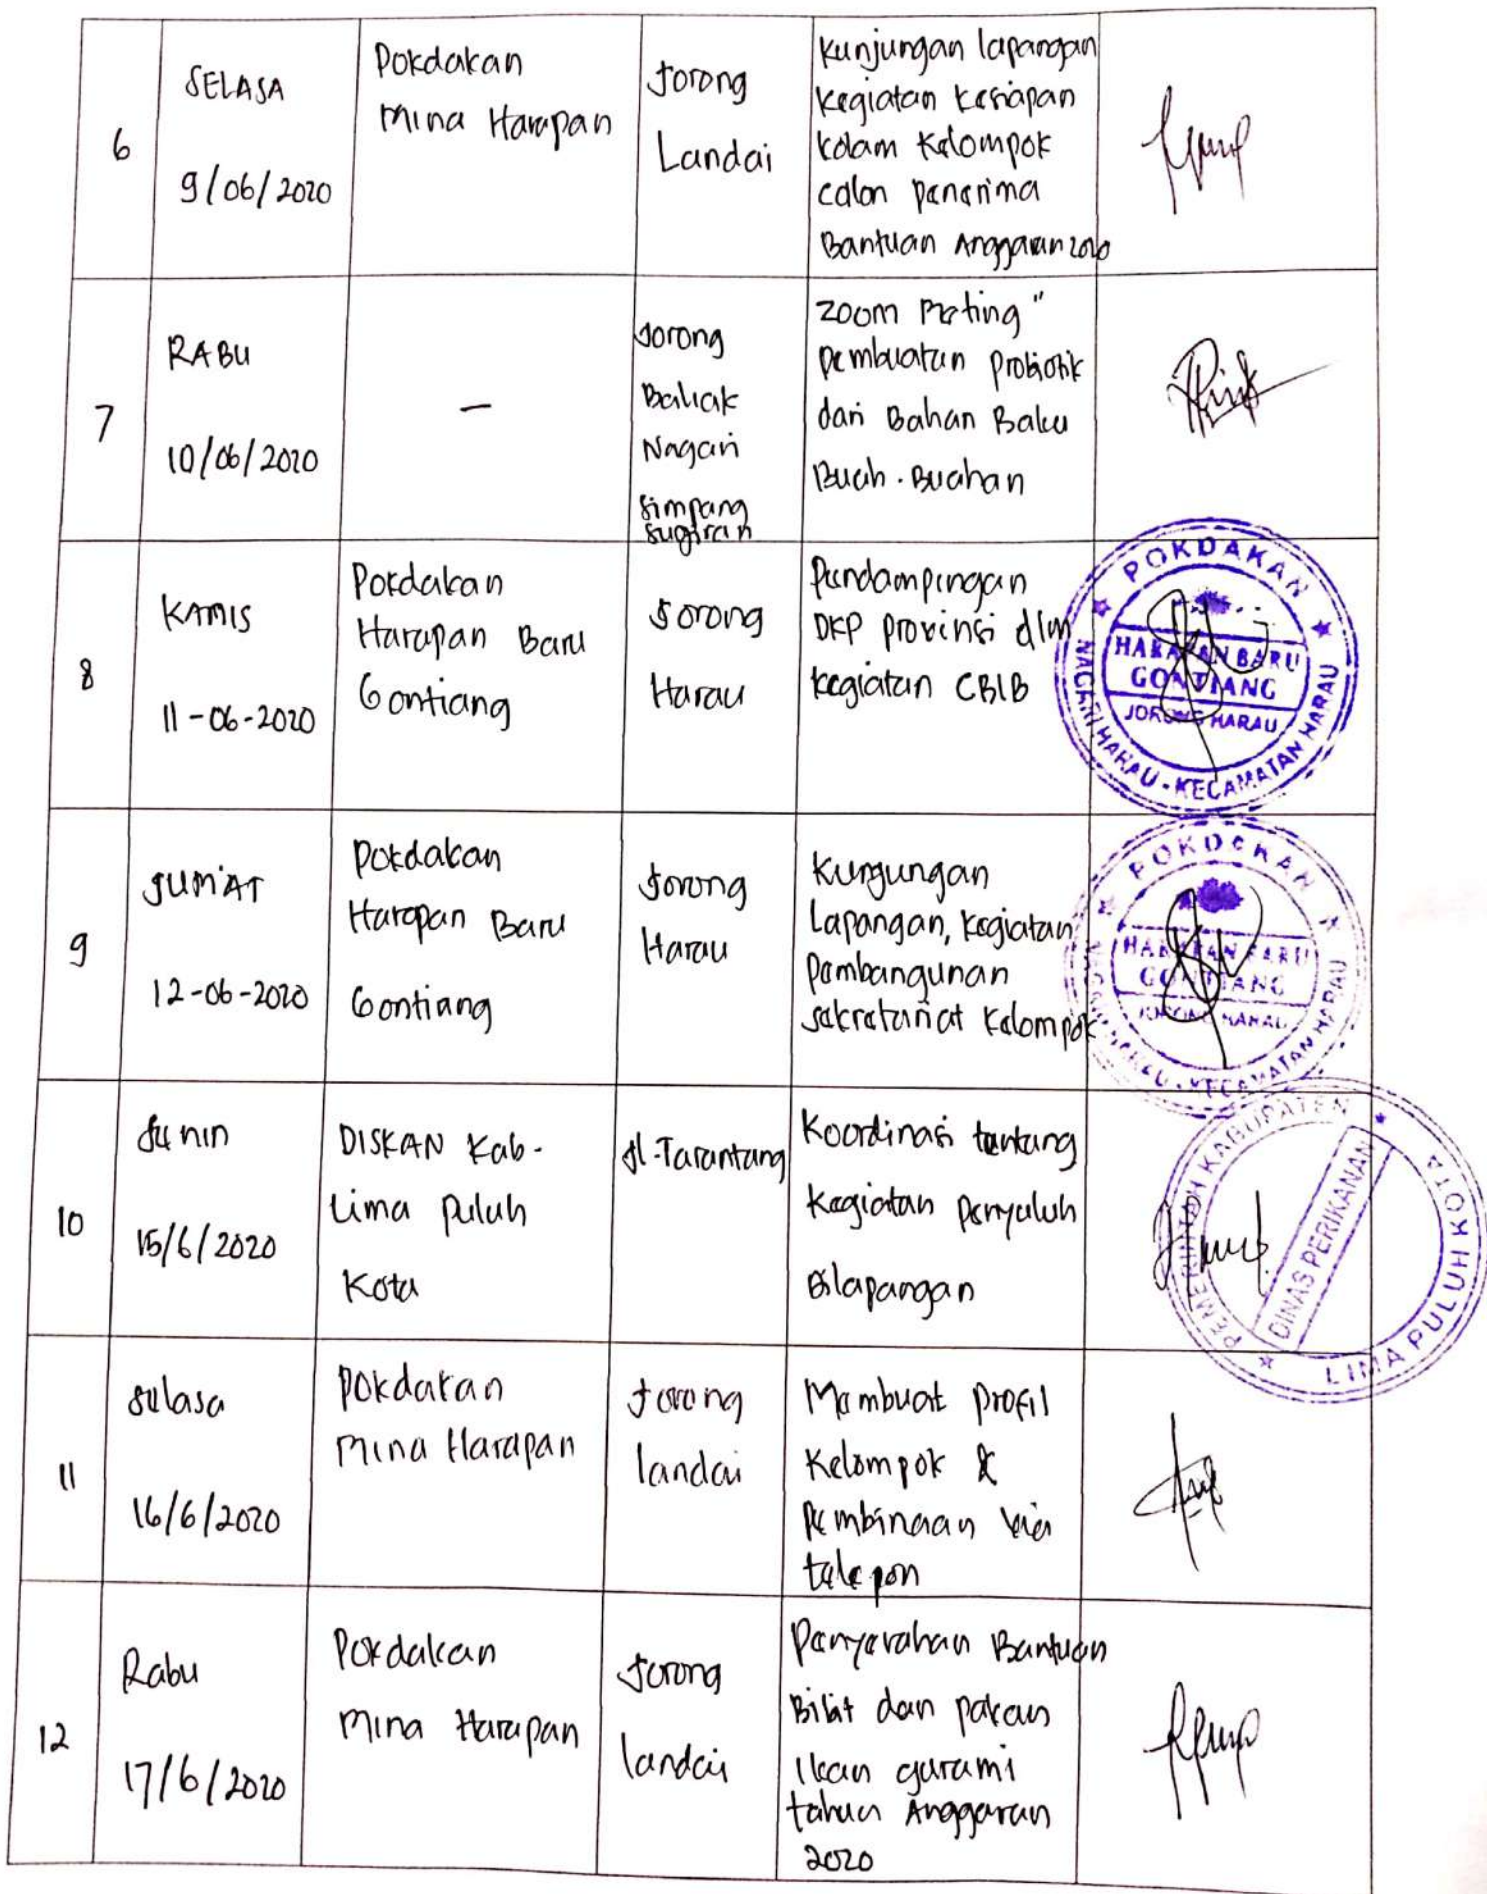 6
SELASA
9/06/2020
Pokdakan
Mina Harapan
Jorong
Landai
Kunjungan lapangan
kegiatan kesiapan
kolam Kelompok
calon penerima
Bantuan Anggaran 2020
7
RABU
10/06/2020
-
Jorong
Baliak
Nagari
Simpang
Sugiran
Zoom Meting "
pembuatan probiotik
dari Bahan Baku
Buah-Buahan
8
KAMIS
11-06-2020
Pokdakan
Harapan Baru
Gontiang
Jorong
Harau
Pendampingan
DKP provinsi dlm
kegiatan CBIB
POKDAKAN
HARAPAN BARU
GONTIANG
JORONG HARAU
NAGARI HARAU - KECAMATAN HARAU
9
JUM'AT
12-06-2020
Pokdakan
Harapan Baru
Gontiang
Jorong
Harau
Kunjungan
Lapangan, kegiatan
Pembangunan
sekretariat Kelompok
POKDAKAN
HARAPAN BARU
GONTIANG
JORONG HARAU
NAGARI HARAU - KECAMATAN HARAU
10
Senin
15/6/2020
DISKAN Kab.
Lima Puluh
Kota
Jl. Tarantang
Koordinasi tentang
Kegiatan penyuluh
Dilapangan
PEMERINTAH KABUPATEN
DINAS PERIKANAN
LIMA PULUH KOTA
11
Selasa
16/6/2020
Pokdakan
Mina Harapan
Jorong
landai
Membuat profil
Kelompok &
Pembinaan via
telepon
12
Rabu
17/6/2020
Pokdakan
Mina Harapan
Jorong
landai
Penyerahan Bantuan
Bibit dan pakan
Ikan gurami
tahun Anggaran
2020